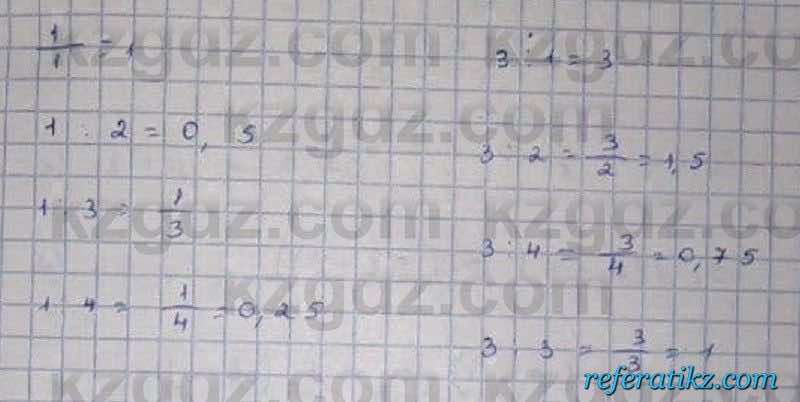 1/1 = 1
1 : 2 = 0,5
1 : 3 = 1/3
1 : 4 = 1/4 = 0,25
3 : 1 = 3
3 : 2 = 3/2 = 1,5
3 : 4 = 3/4 = 0,75
3 : 3 = 3/3 = 1
kzgdz.com
kzgdz.com
kzgdz.com
kzgdz.com
kzgdz.com
referatikz.com